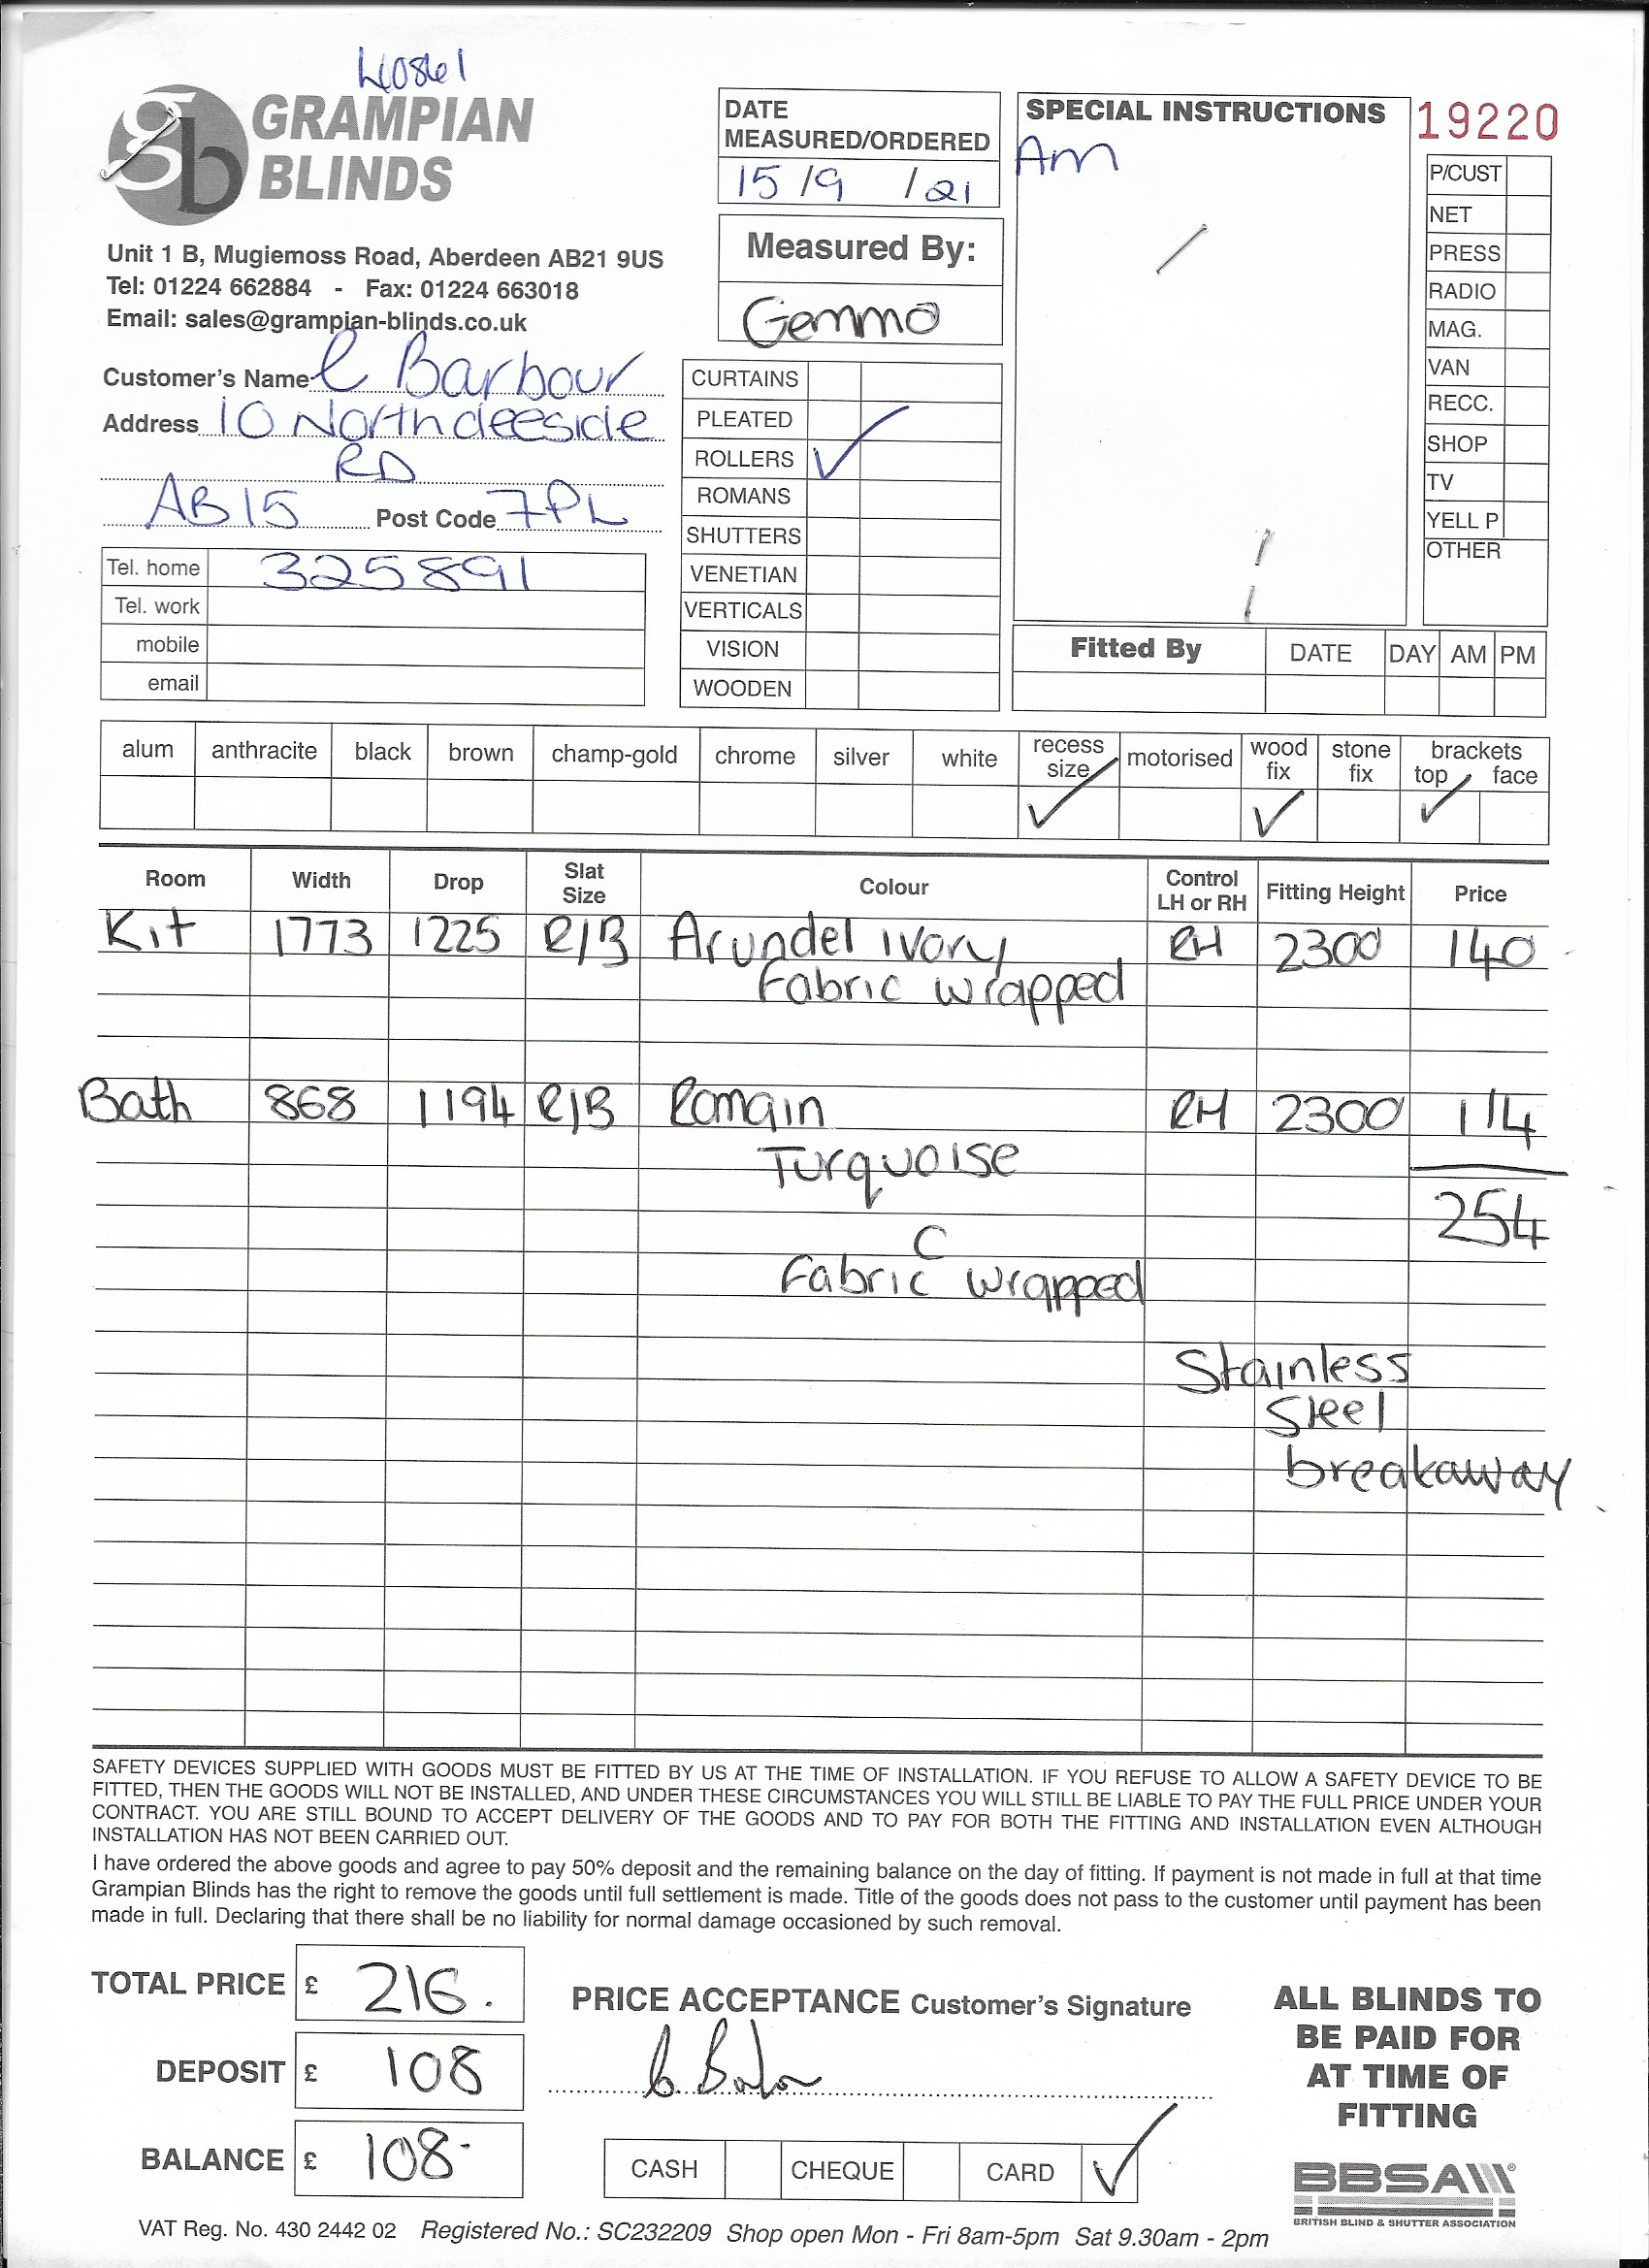 40861
GRAMPIAN
BLINDS
Unit 1 B, Mugiemoss Road, Aberdeen AB21 9US
Tel: 01224 662884 - Fax: 01224 663018
Email: sales@grampian-blinds.co.uk
Customer's Name C Barbour
Address 10 North deeside
RD
AB15 Post Code 7PL
Tel. home 325891
Tel. work
mobile
email
DATE
MEASURED/ORDERED
15/9/21
Measured By:
Gemma
CURTAINS
PLEATED
ROLLERS ✓
ROMANS
SHUTTERS
VENETIAN
VERTICALS
VISION
WOODEN
SPECIAL INSTRUCTIONS
Am
19220
P/CUST
NET
PRESS
RADIO
MAG.
VAN
RECC.
SHOP
TV
YELL P
OTHER
Fitted By DATE DAY AM PM
alum anthracite black brown champ-gold chrome silver white recess size ✓ motorised wood fix ✓ stone fix brackets top ✓ face
Room Width Drop Slat Size Colour Control LH or RH Fitting Height Price
Kit 1773 1225 R/B Arundel ivory RH 2300 140
Fabric wrapped
Bath 868 1194 R/B Romain RH 2300 114
Turquoise
254
C
Fabric wrapped
Stainless
Steel
breakaway
SAFETY DEVICES SUPPLIED WITH GOODS MUST BE FITTED BY US AT THE TIME OF INSTALLATION. IF YOU REFUSE TO ALLOW A SAFETY DEVICE TO BE
FITTED, THEN THE GOODS WILL NOT BE INSTALLED, AND UNDER THESE CIRCUMSTANCES YOU WILL STILL BE LIABLE TO PAY THE FULL PRICE UNDER YOUR
CONTRACT. YOU ARE STILL BOUND TO ACCEPT DELIVERY OF THE GOODS AND TO PAY FOR BOTH THE FITTING AND INSTALLATION EVEN ALTHOUGH
INSTALLATION HAS NOT BEEN CARRIED OUT.
I have ordered the above goods and agree to pay 50% deposit and the remaining balance on the day of fitting. If payment is not made in full at that time
Grampian Blinds has the right to remove the goods until full settlement is made. Title of the goods does not pass to the customer until payment has been
made in full. Declaring that there shall be no liability for normal damage occasioned by such removal.
TOTAL PRICE £ 216.
DEPOSIT £ 108
BALANCE £ 108
PRICE ACCEPTANCE Customer's Signature
CASH CHEQUE CARD ✓
ALL BLINDS TO
BE PAID FOR
AT TIME OF
FITTING
BBSA
BRITISH BLIND & SHUTTER ASSOCIATION
VAT Reg. No. 430 2442 02 Registered No.: SC232209 Shop open Mon - Fri 8am-5pm Sat 9.30am - 2pm